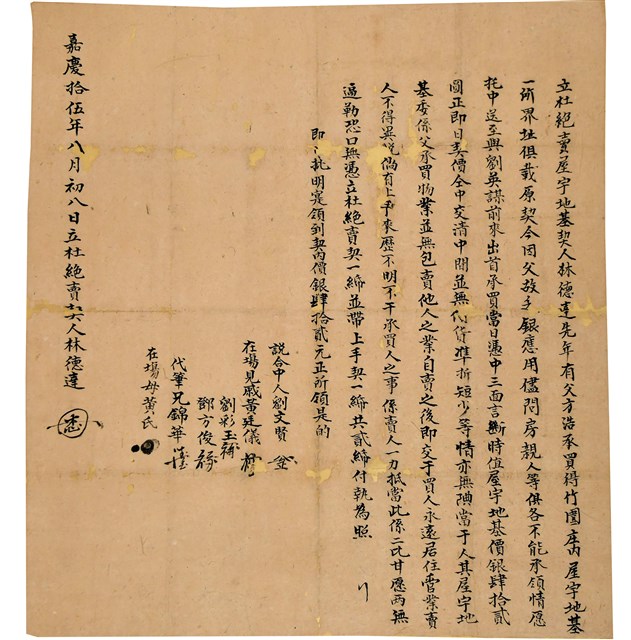 立杜絕賣屋宇地基契人林德達先年有父方浩承買得竹圍庄內屋宇地基
一所界址俱載原契今因父故乏銀應用儘問房親人等俱各不能承領情愿
托中送至與劉英謀前來出首承買當日憑中三面言斷時值屋宇地基價銀肆拾貳
圓正即日契價仝中交清中間並無代貨準折短少等情亦無典當于人其屋宇地
基委係父承買物業並無包賣他人之業自賣之後即交于買人永遠居住營業賣
人不得異說倘有上手來歷不明不干承買人之事係賣人一力抵當此係二比甘愿兩無
逼勒恐口無憑立杜絕賣契一紙並帶上手契一紙共貳紙付執為照
即日批明寔領到契內價銀肆拾貳元正所領是的
說合中人劉文賢
在場見戚黃廷儀
劉彩玉
鄧方俊
代筆兄錦華
在場母黃氏
嘉慶拾伍年八月初八日立杜絕賣契人林德達